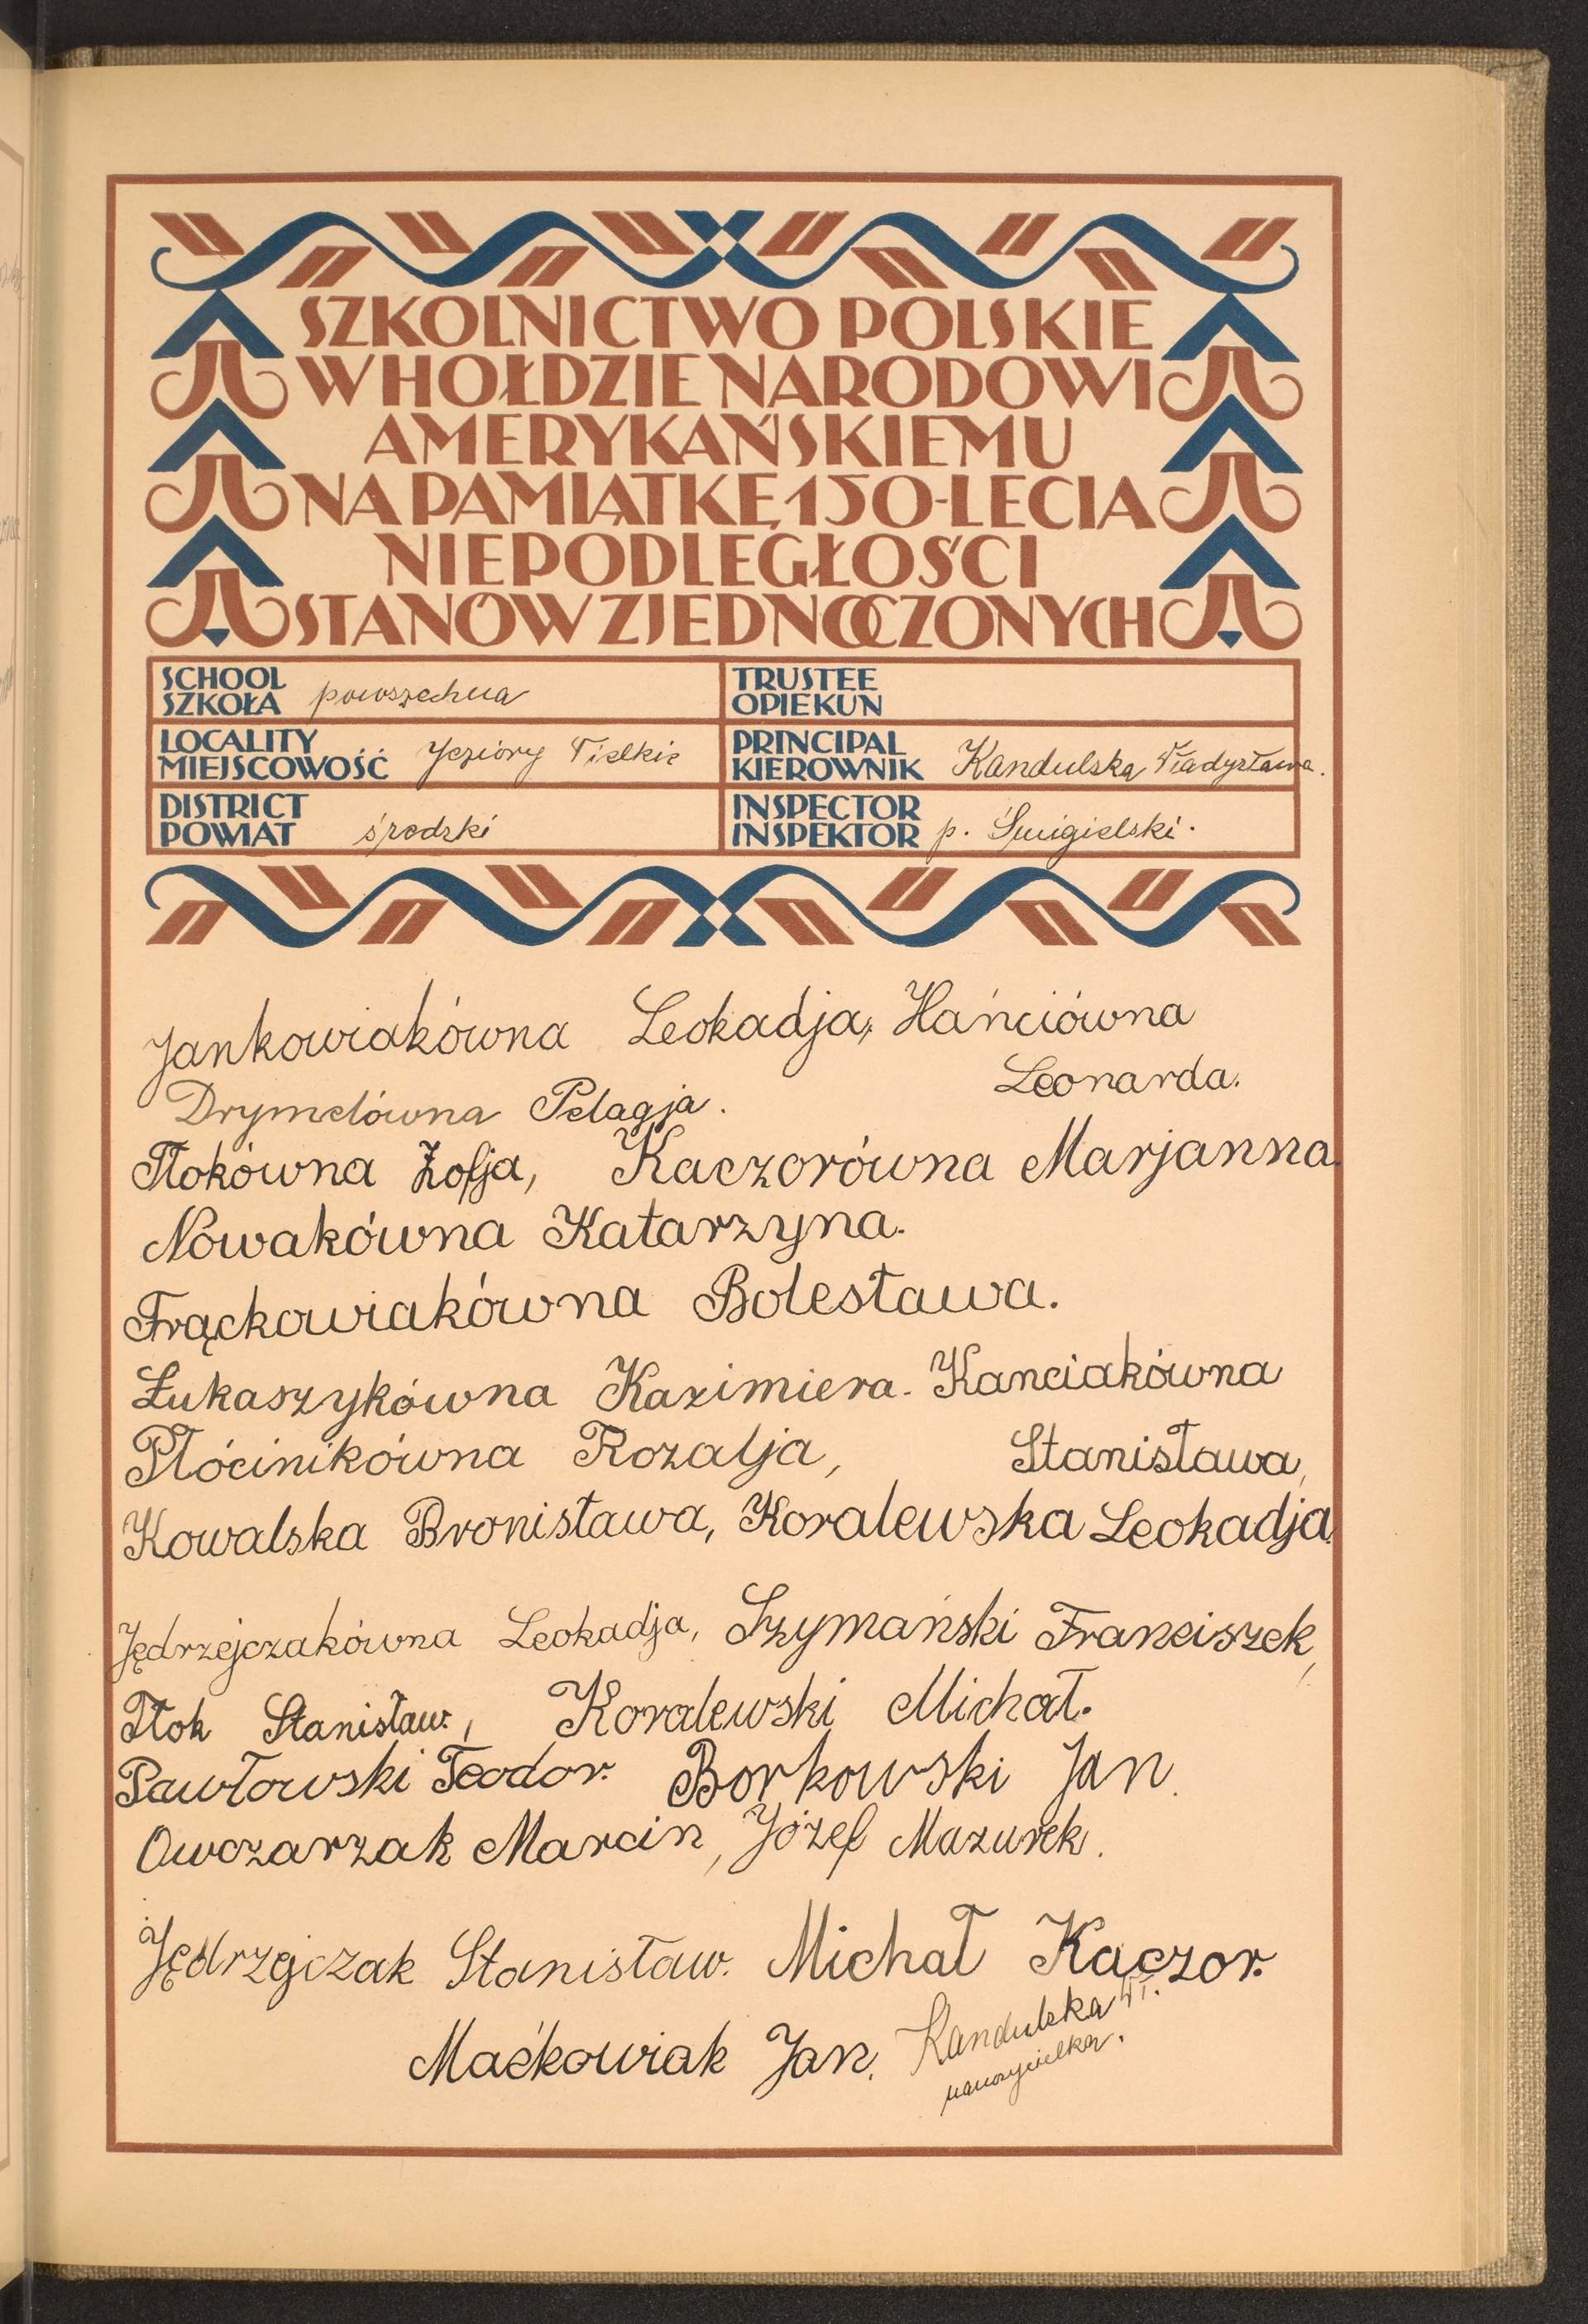 SZKOLNICTWO POLSKIE
W HOŁDZIE NARODOWI
AMERYKAŃSKIEMU
NA PAMIĄTKĘ 150-LECIA
NIEPODLEGŁOŚCI
STANÓW ZJEDNOCZONYCH
SCHOOL
SZKOŁA powszechna
TRUSTEE
OPIEKUN
LOCALITY
MIEJSCOWOŚĆ Jeziory Wielkie
PRINCIPAL
KIEROWNIK Kandulska Władysława.
DISTRICT
POWIAT średzki
INSPECTOR
INSPEKTOR p. Śmigielski.
Jankowiakówna Leokadja, Hańciówna
Leonarda.
Drymelówna Pelagja.
Tłokówna Zofja, Kaczorówna Marjanna
Nowakówna Katarzyna.
Frąckowiakówna Bolesława.
Łukaszykówna Kazimiera. Kanciakówna
Płócinikówna Rozalja, Stanisława,
Kowalska Bronisława, Koralewska Leokadja
Jędrzejczakówna Leokadja, Szymański Franciszek,
Tłok Stanisław, Koralewski Michał.
Pawłowski Teodor. Borkowski Jan.
Owczarzak Marcin, Józef Mazurek.
Jędrzejczak Stanisław. Michał Kaczor.
Maćkowiak Jan. Kandulska Wł.
nauczycielka.